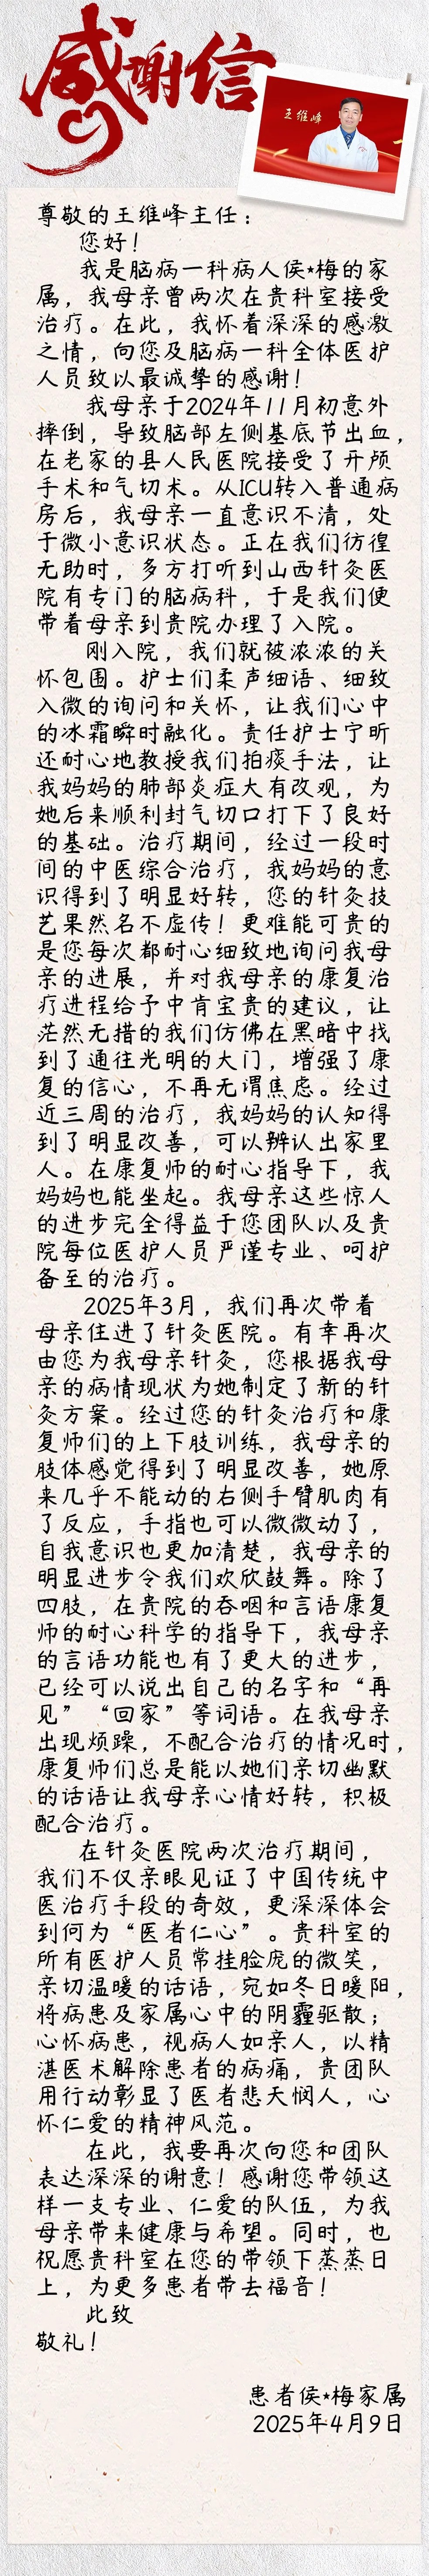 感谢信
王维峰
尊敬的王维峰主任：
您好！
我是脑病一科病人侯*梅的家
属，我母亲曾两次在贵科室接受
治疗。在此，我怀着深深的感激
之情，向您及脑病一科全体医护
人员致以最诚挚的感谢！
我母亲于2024年11月初意外
摔倒，导致脑部左侧基底节出血，
在老家的县人民医院接受了开颅
手术和气切术。从ICU转入普通病
房后，我母亲一直意识不清，处
于微小意识状态。正在我们彷徨
无助时，多方打听到山西针灸医
院有专门的脑病科，于是我们便
带着母亲到贵院办理了入院。
刚入院，我们就被浓浓的关
怀包围。护士们柔声细语、细致
入微的询问和关怀，让我们心中
的冰霜瞬时融化。责任护士宁昕
还耐心地教授我们拍痰手法，让
我妈妈的肺部炎症大有改观，为
她后来顺利封气切口打下了良好
的基础。治疗期间，经过一段时
间的中医综合治疗，我妈妈的意
识得到了明显好转，您的针灸技
艺果然名不虚传！更难能可贵的
是您每次都耐心细致地询问我母
亲的进展，并对我母亲的康复治
疗进程给予中肯宝贵的建议，让
茫然无措的我们仿佛在黑暗中找
到了通往光明的大门，增强了康
复的信心，不再无谓焦虑。经过
近三周的治疗，我妈妈的认知得
到了明显改善，可以辨认出家里
人。在康复师的耐心指导下，我
妈妈也能坐起。我母亲这些惊人
的进步完全得益于您团队以及贵
院每位医护人员严谨专业、呵护
备至的治疗。
2025年3月，我们再次带着
母亲住进了针灸医院。有幸再次
由您为我母亲针灸，您根据我母
亲的病情现状为她制定了新的针
灸方案。经过您的针灸治疗和康
复师们的上下肢训练，我母亲的
肢体感觉得到了明显改善，她原
来几乎不能动的右侧手臂肌肉有
了反应，手指也可以微微动了，
自我意识也更加清楚，我母亲的
明显进步令我们欢欣鼓舞。除了
四肢，在贵院的吞咽和言语康复
师的耐心科学的指导下，我母亲
的言语功能也有了更大的进步，
已经可以说出自己的名字和“再
见”“回家”等词语。在我母亲
出现烦躁，不配合治疗的情况时，
康复师们总是能以她们亲切幽默
的话语让我母亲心情好转，积极
配合治疗。
在针灸医院两次治疗期间，
我们不仅亲眼见证了中国传统中
医治疗手段的奇效，更深深体会
到何为“医者仁心”。贵科室的
所有医护人员常挂脸庞的微笑，
亲切温暖的话语，宛如冬日暖阳，
将病患及家属心中的阴霾驱散；
心怀病患，视病人如亲人，以精
湛医术解除患者的病痛，贵团队
用行动彰显了医者悲天悯人，心
怀仁爱的精神风范。
在此，我要再次向您和团队
表达深深的谢意！感谢您带领这
样一支专业、仁爱的队伍，为我
母亲带来健康与希望。同时，也
祝愿贵科室在您的带领下蒸蒸日
上，为更多患者带去福音！
此致
敬礼！
患者侯*梅家属
2025年4月9日